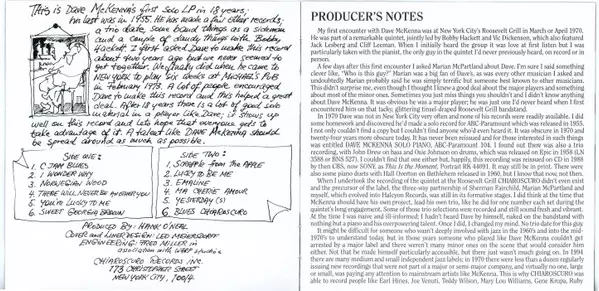 THIS IS DAVE MCKENNA'S first SOLO LP IN 18 years;
his last was in 1955. HE HAS MADE A few other records;
a trio date, some band things as a sideman
and a couple of dandy things with Bobby
Hackett. I first asked DAVE to make this record
about two years ago but we never seemed to
get together. We finally did when he came to
NEW YORK to play six weeks at MICHAEL'S PUB
in February 1973. A lot of people encouraged
DAVE to make this record and this helped a great
deal. AFTER 18 years there is a lot of good
material in a player like DAVE; it shows up
well on this record and lets hope that everyone gets to
take advantage of it. A talent like DAVE McKenna should
be spread around as much as possible.
SIDE ONE:
1. C JAM BLUES
2. I WONDER WHY
3. NORWEGIAN WOOD
4. THERE WILL NEVER BE ANOTHER YOU
5. YOU'RE LUCKY TO ME
6. SWEET GEORGIA BROWN
SIDE TWO:
1. SCRAPPLE FROM THE APPLE
2. LUCKY TO BE ME
3. EMALINE
4. MA CHERIE AMOUR
5. YESTERDAY(S)
6. BLUES CHIAROSCURO
PRODUCED BY: HANK O'NEAL
COVER and LINER DESIGN: LEO MEIERSDORFF
ENGINEERING: FRED MILLER in
association with WARP studio
CHIAROSCURO RECORDS INC.
173 CHRISTOPHER STREET
NEW YORK CITY, 10014
PRODUCER'S NOTES
My first encounter with Dave McKenna was at New York City's Roosevelt Grill in March or April 1970.
He was part of a remarkable quintet, jointly led by Bobby Hackett and Vic Dickenson, which also featured
Jack Lesberg and Cliff Leeman. When I initially heard the group it was love at first listen but I was
particularly taken with the pianist, the only guy in the quintet I'd never previously heard, on record or in
person.
A few days after this first encounter I asked Marian McPartland about Dave. I'm sure I said something
clever like, "Who is this guy?" Marian was a big fan of Dave's, as was every other musician I asked and
undoubtedly Marian probably said he was simply terrific but someone best known to other musicians.
This didn't surprise me, even though I thought I knew a good deal about the major players and something
about most of the minor ones. Sometimes you just miss things you shouldn't and I didn't know anything
about Dave McKenna. It was obvious he was a major player; he was just one I'd never heard when I first
encountered him on that tacky, glittering tinsel-draped Roosevelt Grill bandstand.
In 1970 Dave was not in New York City very often and none of his records were readily available. I did
some homework and discovered he'd made a solo record for ABC Paramount which was released in 1955.
I not only couldn't find a copy but I couldn't find anyone who'd even heard it. It was obscure in 1970 and
twenty-four years more obscure today. It has never been reissued and for those interested in such things
was entitled DAVE MCKENNA SOLO PIANO, ABC-Paramount 104. I found out there was also a trio
recording, with John Drew on bass and Osie Johnson on drums, which was released on Epic in 1958 (LN
3588 or BN 527). I couldn't find that one either but, happily, this recording was reissued on CD in 1988
by then CBS, now SONY, as This Is the Moment, Portrait RK 44091. It may still be in print. There were
also some piano duets with Hall Overton on Bethlehem released in 1960, but I know that now, not then.
When I undertook the recording of the quintet at the Roosevelt Grill CHIAROSCURO didn't even exist
and the precursor of the label, the three-way partnership of Sherman Fairchild, Marian McPartland and
myself, which evolved into Halcyon Records, was still in its formative stages. I did think at the time that
McKenna should have his own project, lead his own trio, like he did for one number each set during the
quintet's long engagement. Some of those trio selections were recorded and still sound fresh and vibrant.
At the time I was naive and ill-informed; I hadn't heard Dave by himself, naked on the bandstand with
nothing but a piano and his overpowering talent. Once I did, I changed my mind. No trio date for this guy.
It might be difficult for someone who wasn't deeply involved with jazz in the 1960's and into the mid-
1970's to understand today, but in those years someone who played like Dave McKenna couldn't get
arrested by a major label and there weren't many minor ones on the scene that would consider him
either. Not that he made himself particularly accessible, but there just wasn't much going on. In 1994
there are many medium and small independent jazz labels; in 1970 there were less than a dozen regularly
issuing new recordings that were not part of a major or semi-major company, and virtually no one, large
or small, was paying any attention to mainstream artists like McKenna. This is why CHIAROSCURO was
able to record people like Earl Hines, Joe Venuti, Teddy Wilson, Mary Lou Williams, Gene Krupa, Ruby